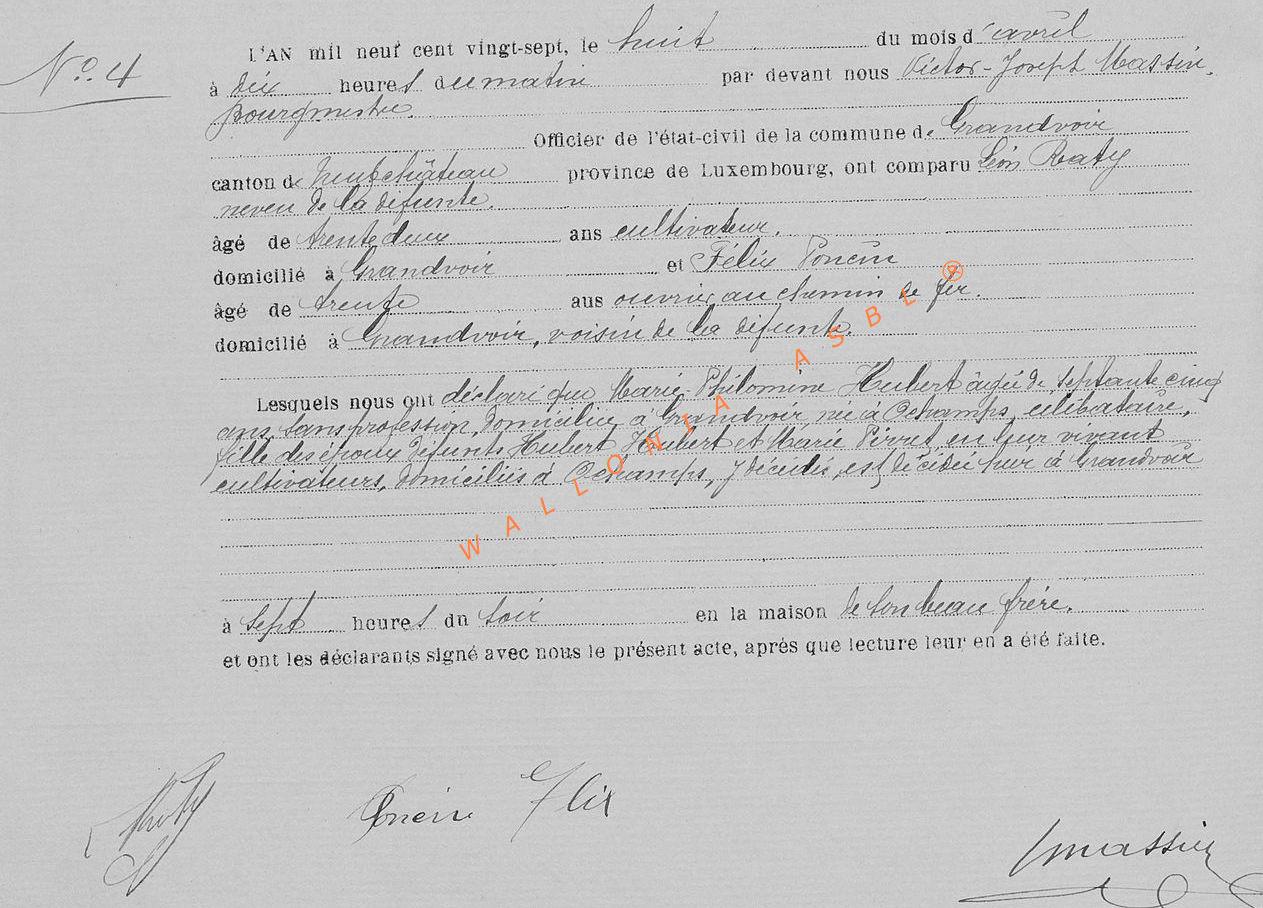 N°. 4
L'AN mil neuf cent vingt-sept, le huit du mois d'avril
à dix heures du matin par devant nous Victor-Joseph Massin,
bourgmestre.
Officier de l'état-civil de la commune de Grandvoir
canton de Neufchâteau province de Luxembourg, ont comparu Léon Raty
neveu de la défunte.
âgé de trente deux ans cultivateur.
domicilié à Grandvoir et Félix Poncin
âgé de trente aus ouvrier au chemin de fer.
domicilié à Grandvoir, voisin de la défunte.
Lesquels nous ont déclaré que Marie-Philomène Hubert âgée de septante cinq
ans, sans profession, domiciliée à Grandvoir, née à Ochamps, célibataire,
fille des époux défunts Hubert Hubert et Marie Pirret, en leur vivant
cultivateurs, domiciliés à Ochamps, y décédés, est décédée hier à Grandvoir
à sept heures du soir en la maison de son beau frère.
et ont les déclarants signé avec nous le présent acte, après que lecture leur en a été faite.
Raty Poncin Flix
Vmassin
WALLONIA ASBL ®